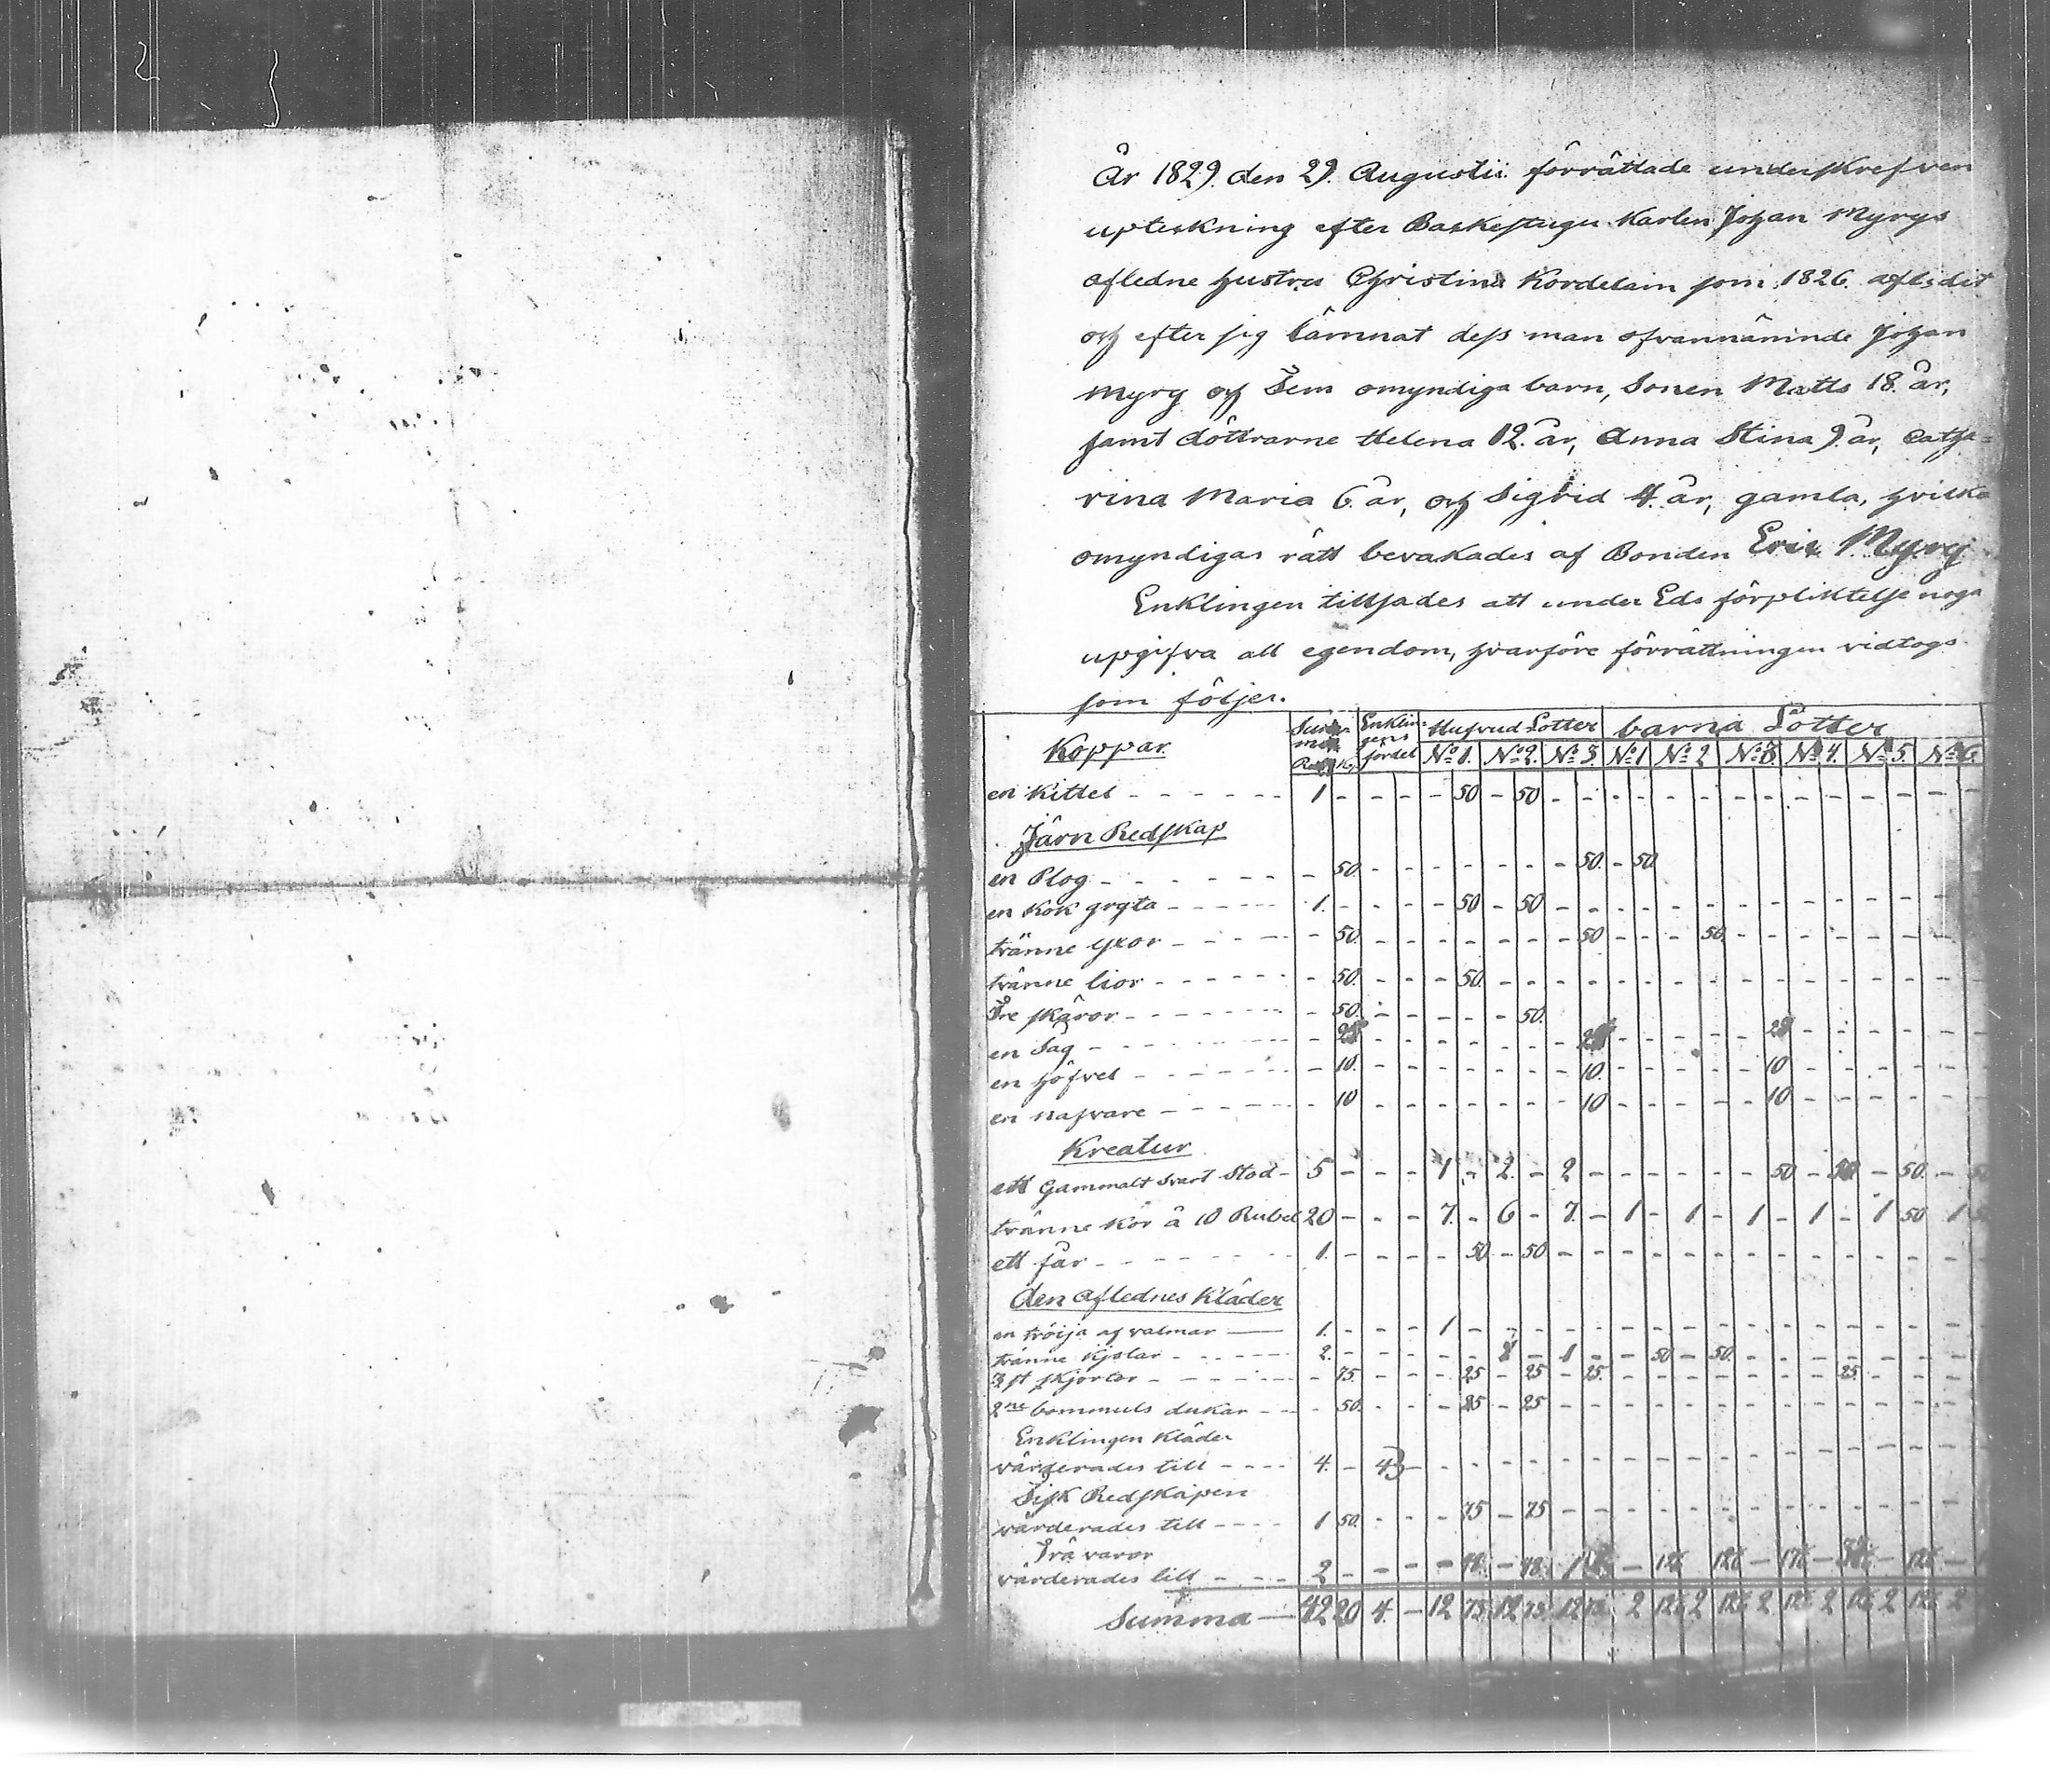 År 1829. den 29. Augustii förrättade underskrefven
upteckning efter Backestugu Karlen Johan Myrys
afledne hustru Christina Kordelain som 1826. aflidit
och efter sig lämnat dess man ofvannäminde Johan
Myry och Fem omyndiga barn, Sonen Matts 18. år,
samt döttrarne Helena 12. år, Anna Stina 9. år, Catha=
rina Maria 6. år, och Sigrid 4. år, gamla, hvilka
omyndigas rätt bevakades af Bonden Eric Myry
Enklingen tillsades att under Eds förpliktelse noga
upgifva all egendom, hvarföre förrättningen vidtogs
som följer.
Koppar Summa Enklingens fördel Hufvud Lotter barna Lotter
No 1. No 2. No 3. No 1 No 2 No 3. No 4. No 5. No 6.
en Kittel - 1 - - - - 50 - 50 -
Järn Redskap
en Plog - - 50. - - - - - - - 50. - 50
en Kok gryta - 1. - - - - 50 - 50 -
tränne yxor - - 50. - - - - - - - 50 - - - 50
tvänne lior - - 50. - - - 50.
Tre skäror - - 50. - - - - - 50.
en Såg - - 25
en höfvel - - 10. - - - - - - - 10. - - - - - 10
en nafvare - - 10 - - - - - - - 10 - - - - - 10
Kreatur
ett Gammalt svart Stod - 5 - - - 1 - 2. - 2 - - - - - - 50 - 50 - 50. -
tvänne Kor å 10 Rubel 20 - - - 7. - 6 - 7. - 1 - 1 - 1 - 1 - 1 50 1
ett får - 1. - - - - 50 - 50 -
den aflednes Kläder
en tröija af valmar - 1. - - - 1 -
tvänne Kjolar - 2. - - - - - 1 - 1 - - 50 - 50.
3 st skjortor - - 75. - - - 25 - 25 - 25. - - - - - - - 25.
2ne bommuls dukar - - 50. - - - 25 - 25 -
Enklingen Kläder
värderades till - 4. - 4 -
Fisk Redskapen
värderades till - 1 50. - - - 75 - 75 -
Trä varor
värderades till - 2
Summa - 42 20 4. - 12 73. 12 73. 12 73. 2 2 2 2 2 2